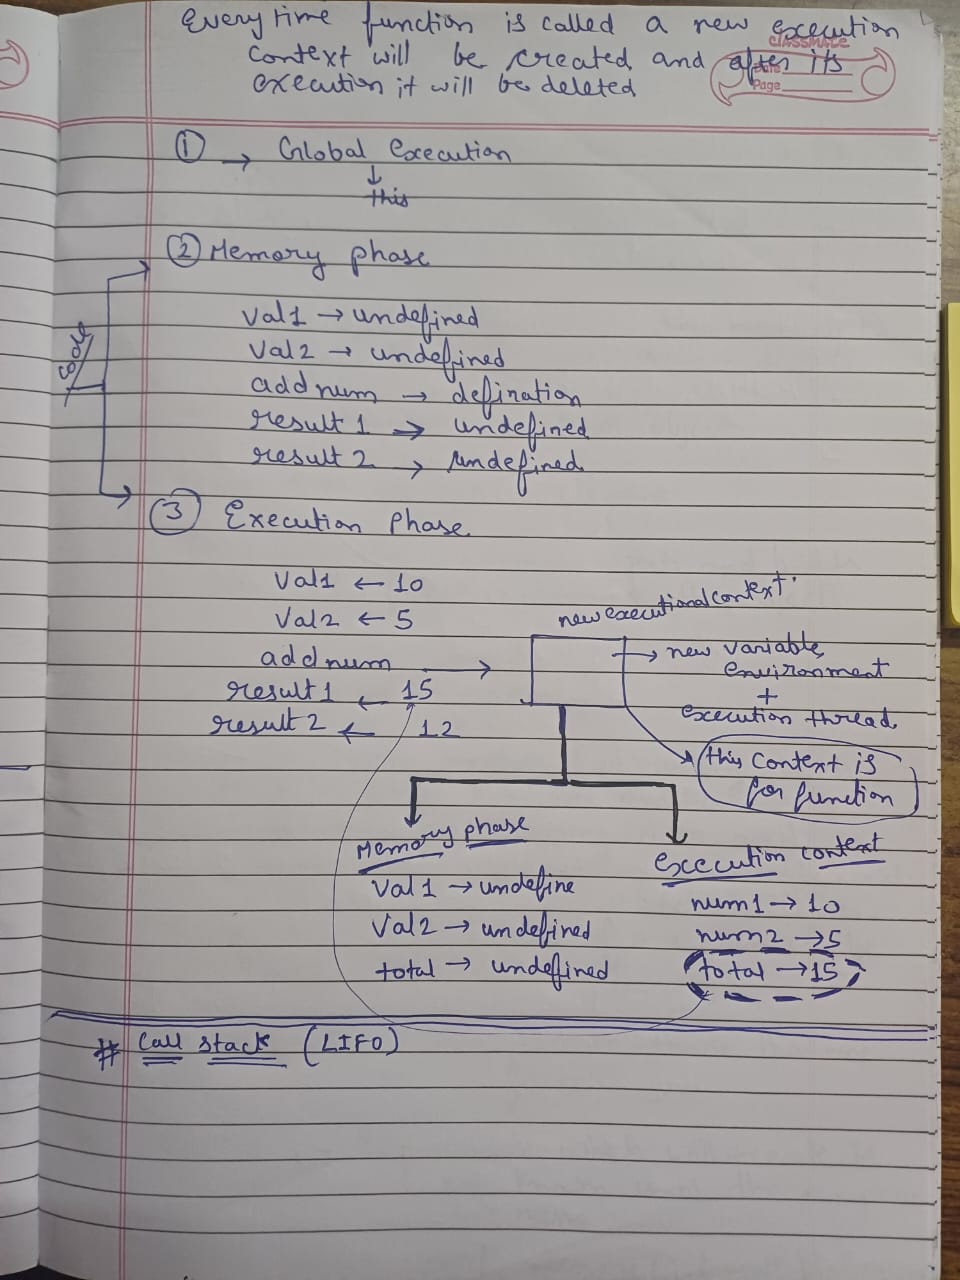 Every time function is called a new execution
context will be created and after its
execution it will be deleted
classmate
Date
Page
① → Global Execution
↓
this
② Memory phase
val1 → undefined
val2 → undefined
addnum → defination
result 1 → undefined
result 2 → undefined
③ Execution phase
val1 ← 10
val2 ← 5
addnum →
result1 ← 15
result2 ← 12
new executional context
→ new variable
environment
+
execution thread
this context is
for function
Memory phase
val1 → undefine
val2 → undefined
total → undefined
Execution context
num1 → 10
num2 → 5
total → 15
# Call stack (LIFO)